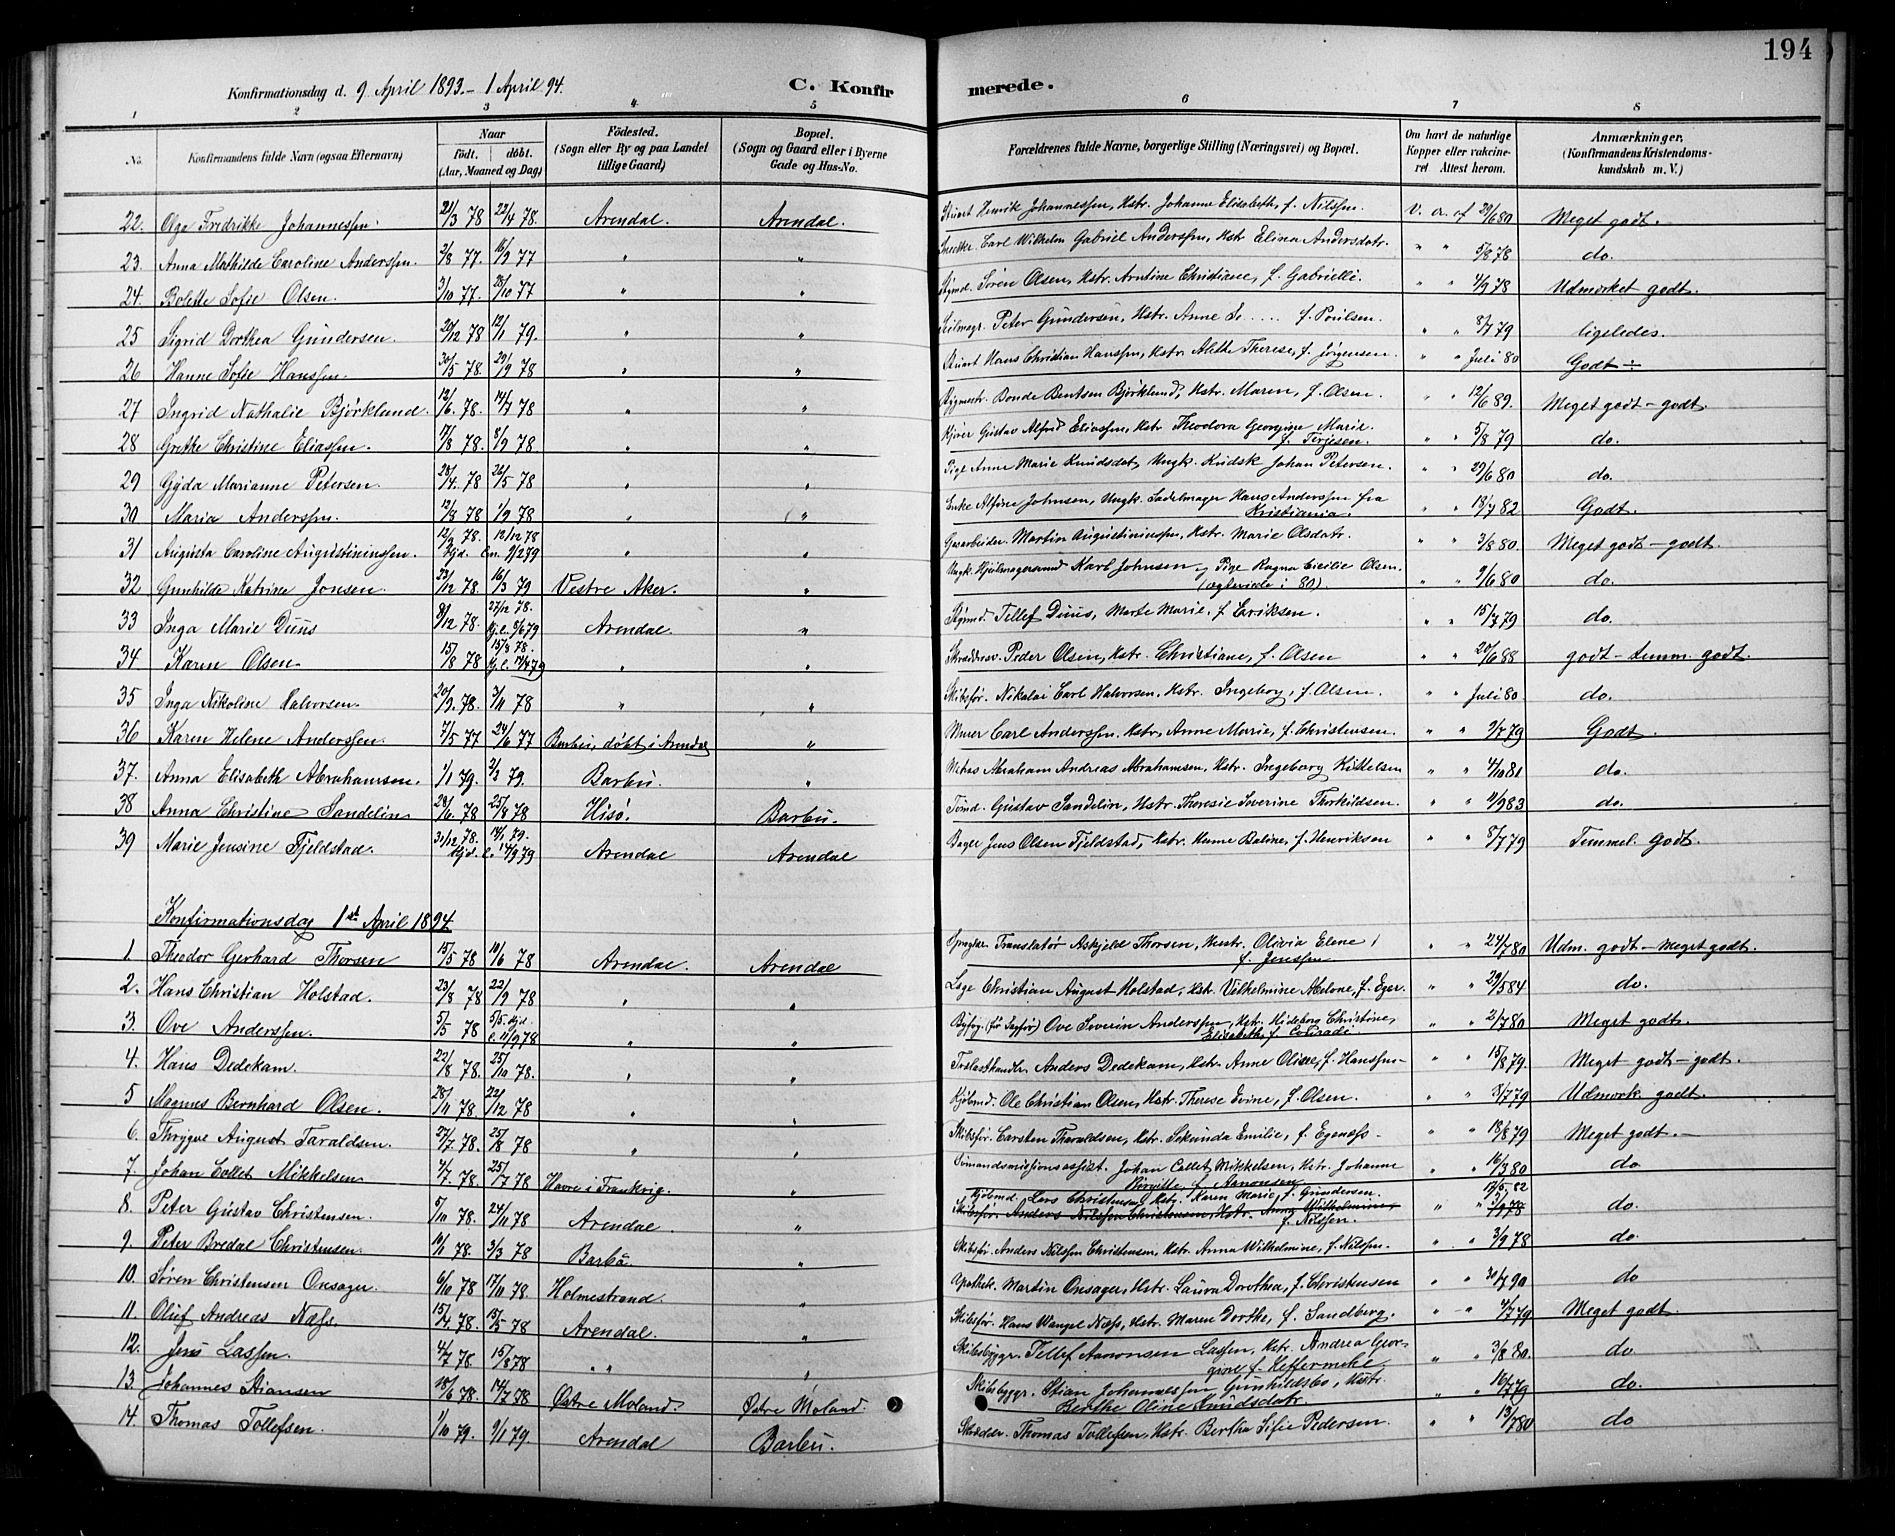 194
Konfirmationsdag d. 9 April 1893 - 1 April 94.
C. Konfirmerede.
1 2 3 4 5 6 7 8
No. Konfirmandens fulde Navn (ogsaa Efternavn) Naar Født. døbt. (Aar, Maaned og Dag) Fødested. (Sogn eller By og paa Landet tillige Gaard) Bopæl. (Sogn og Gaard eller i Byerne Gade og Hus-No. Forældrenes fulde Navne, borgerlige Stilling (Næringsvei) og Bopæl. Om havt de naturlige Kopper eller vakcineret Attest herom. Anmærkninger, (Konfirmandens Kristendomskundskab m. V.)
22. Olga Fredrikke Johannessen 21/3 78 22/4 78. Arendal. Arendal. Stuert Henrik Johannessen, Hstr. Johanne Elisabeth, f. Nilssen. v. a. af 29/6 80 Meget godt.
23. Anna Mathilde Caroline Anderssen. 2/8 77. 16/9 77 " " Snedker Carl Wilhelm Gabriel Anderssen, Hstr Elina Andersdatr. " " 5/8 78 do.
24. Bolette Sofie Olsen. 3/10 77. 28/10 77 " " Stymd. Søren Olsen, Hstr. Arntine Christiane, f. Gabrielli. " " 4/9 78 Udmerket godt.
25 Sigrid Dorthea Gundersen. 20/12 78 12/1 79. " " Seilmagr. Peter Gundersen, Hstr. Anne Se.... f. Poulsen. " " 8/7 79 ligeledes.
26 Hanne Sofie Hanssen. 30/5 78. 29/9 78 " " Stuert Hans Christian Hanssen, Hstr. Alethe Therese, f. Jørgensen. " " Juli 80 Godt ÷
27 Ingrid Nathalie Bjørklund. 13/6. 78. 14/7 78 " " Bygmstr. Bonde Bentsen Bjørklund, Hstr. Maren, f. Olsen. " " 12/6 89. Meget godt - godt.
28 Grethe Christine Eliassen. 17/8 78. 8/9 78 " " Kjører Gustav Alfred Eliassen, Hstr Theodora Georgine Marie. f. Terjesen. " " 5/8 79 do.
29 Gyda Marianne Petersen. 28/4. 78 26/5 78 " " Pige Anne Marie Knudsdat, Ungk. Kudsk Johan Petersen. " " 29/6 80 do.
30 Maria Anderssen. 12/8 78 1/9 78 " " Enke Alfine Johnsen, Ungk. Sadelmager Hans Anderssen fra Kristiania. " " 13/7 82 Godt.
31 Augusta Caroline Augustininssen. 78. Hjd. 12/12 78 9/2 79 " " Gasarbeider. Martin Augustininssen, Hstr. Marie Olsdatr. " " 3/8 80. Meget godt - godt
32 Gunhilde Katrine Jonsen 23/12 78. 16/3 79 Vestre Aker. " Ungk. Karl Johnsen og Pige Ragna Cicilie Olsen. (ægteviede i 80) " " 9/6 80 do.
33 Inga Marie Duus 8/12 78. 27/12 78. 8/6 79 Arendal. " Stymd. Tellef Duus, Marte Marie, f Eriksen. " " 15/7 79 do.
34 Karen Olsen. 15/8 78 15/8 78. " " Peder Olsen, Hstr. Christiane, f. Olsen " " 20/6 88 godt - temm. godt.
35 Inga Nikoline Halvorsen. 20/9. 78. 3/11 78 " " Skibsfør. Nikolai Carl Halvorsen, Hstr. Ingeborg, f. Olsen. " " Juli 80. do.
36 Karen Helene Anderssen. 7/5 77 24/6 77 Barbu, døbt i Arendal " Murer Carl Anderssen. Hstr. Anne Marie, f. Christensen. " " 9/7 79 Godt.
37. Anna Elisabeth Abrahamsen. 1/1 79. 2/2 79. Barbu. " Matros Abraham Andreas Abrahamsen, Hstr. Ingeborg Kittelsen " " 4/10 81 do.
38 Anna Christine Sandelin 28/6. 78 25/8 78 Hisø. Barbu. Tømd. Gustav Sandelin, Hstr. Theresie Severine Thorkildsen. " " 9/83 do.
39 Marie Jensine Fjeldstad. 31/12 78. Hjd. 79. 14/9 79 Arendal Arendal Bager Jens Olsen Fjeldstad, Hstr. Hanne Baline, f. Henriksen " " 8/7 79 Temmel. godt.
Konfirmationsdag 1st April 1894
1 Theodor Gerhard Thorsen 15/5 78 10/6 78 Arendal. Arendal Translatør Askjeld Thorsen, Hustr. Olivia Elene, f. Jenssen " " 24/7 80 Udm. godt - Meget godt.
2. Hans Christian Holstad. 23/8 78 22/9 78 " " Læge Christian August Holstad, Hstr. Vilhelmine Abelone, f. Eger. " " 29/5 84 do.
3. Ove Anderssen. 5/5 78 5/5. Hjd. 11/9 78 " " Ove Severin Anderssen, Hstr. Hideborg Christine, Elisabeth, f. Conradi " " 2/7 80 Meget godt.
4. Hans Dedekam. 22/8 78. 25/10 78. " " Trælasthandler Anders Dedekam, Hstr. Anne Oline, f. Hanssen- " " 15/8 79. Meget godt - godt.
5 Magnus Bernhard Olsen. 28/11 78 22/12 78 " " Kjøbmd. Ole Christian Olsen, Hstr. Therese Evine, f. Olsen. " " 3/7 79 Udmerk. godt.
6. Thrygve August Taraldsen. 27/7 78. 25/8 78 " " Skibsfør. Carsten Tharaldsen, Hstr. Sekunda Emilie, f. Egenæss- " " 18/8 79 Meget godt. -
7 Johan Collet Mikkelsen 4/7. 78. 25/7 78 Havre i Frankrig. " Sømandsmissionsassist. Johan Collet Mikkelsen, Hstr. Johanne Birgitte, f. Aanonsen " " 16/3 80 do
8. Peter Gustav Christensen. 5/10 78. 24/11 78 Arendal. " Kjøbmd. Lars Christensen, Hstr. Karen Marie, f. Gundersen. Skibsfør. Anders Nilssen Christensen, Hstr. Anna Wilhelmine, f. Nilssen. " " 82 3/9 78 do.
9. Peter Bredal Christensen. 10/1 78. 3/3 78 Barbu. " Skibsfør. Anders Nilssen Christensen, Hstr Anna Wilhelmine, f. Nilssen. " " 3/9 78 do.
10. Søren Christensen Onsager. 6/10 78 17/11 78. Holmestrand. " Apothek. Martin Onsager, Hstr. Laura Dorothea, f. Christensen " " 30/7 90 do
11. Oluf Andreas Næss. 15/4 78. 15/5 78 Arendal. " Skibsfør. Hans Wangel Næss, Hstr. Maren Dorthe, f. Sandberg. " " 4/7 79 Meget godt.
12. Jens Lassen. 4/7 78. 15/8 78 " " " Skibsbyggr. Tellef Aanonsen Lassen, Hstr. Andrea Georgine f. Heffermehl. " " 3/8 80. do
13. Johannes Stiansen 18/6 78. 14/7 78 Østre Moland. Østre Moland. Skibsbyggr. Stian Johannessen Gunhildsbo, Hustr. Berthe Oline Knudsdatr. " " 16/7 79 do.
14. Thomas Tollefsen. 1/10 79. 9/11 79 Arendal Barbu. Skrædder. Thomas Tollefsen, Hstr. Bertha Sofie Pedersen. " " 13/7 80 do